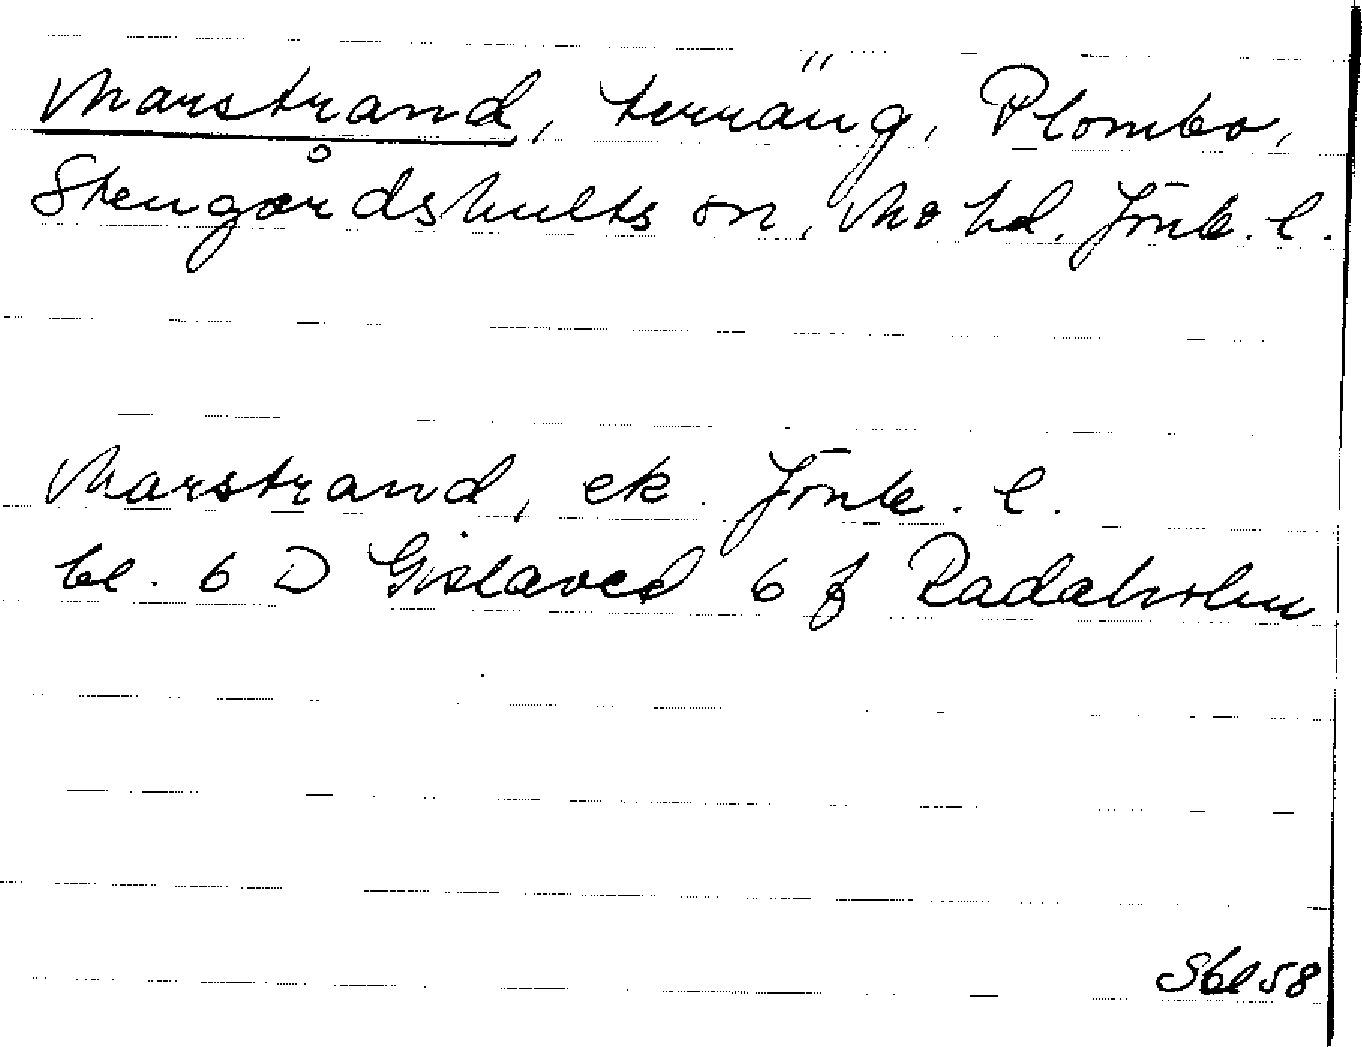 Marstrand, terräng, Plombo,
Stengårdshults sn, Mo hd. Jönk. l.
Marstrand, ek. Jönk. l.
bl. 6 D Gislaved 6 f Radaholm
Sbl 58